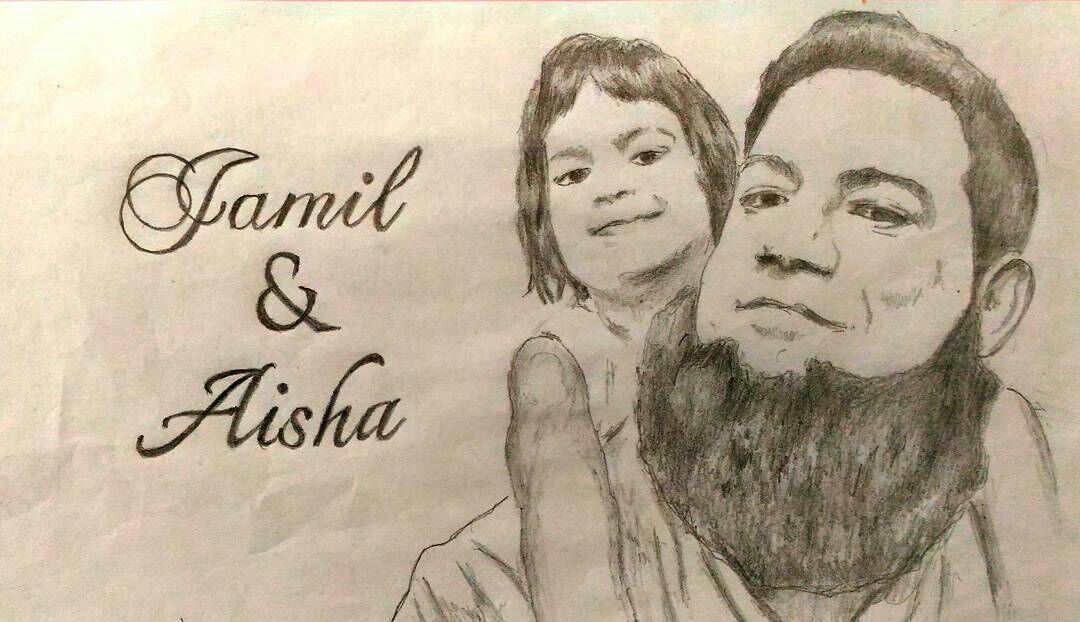 Jamil
&
Aisha